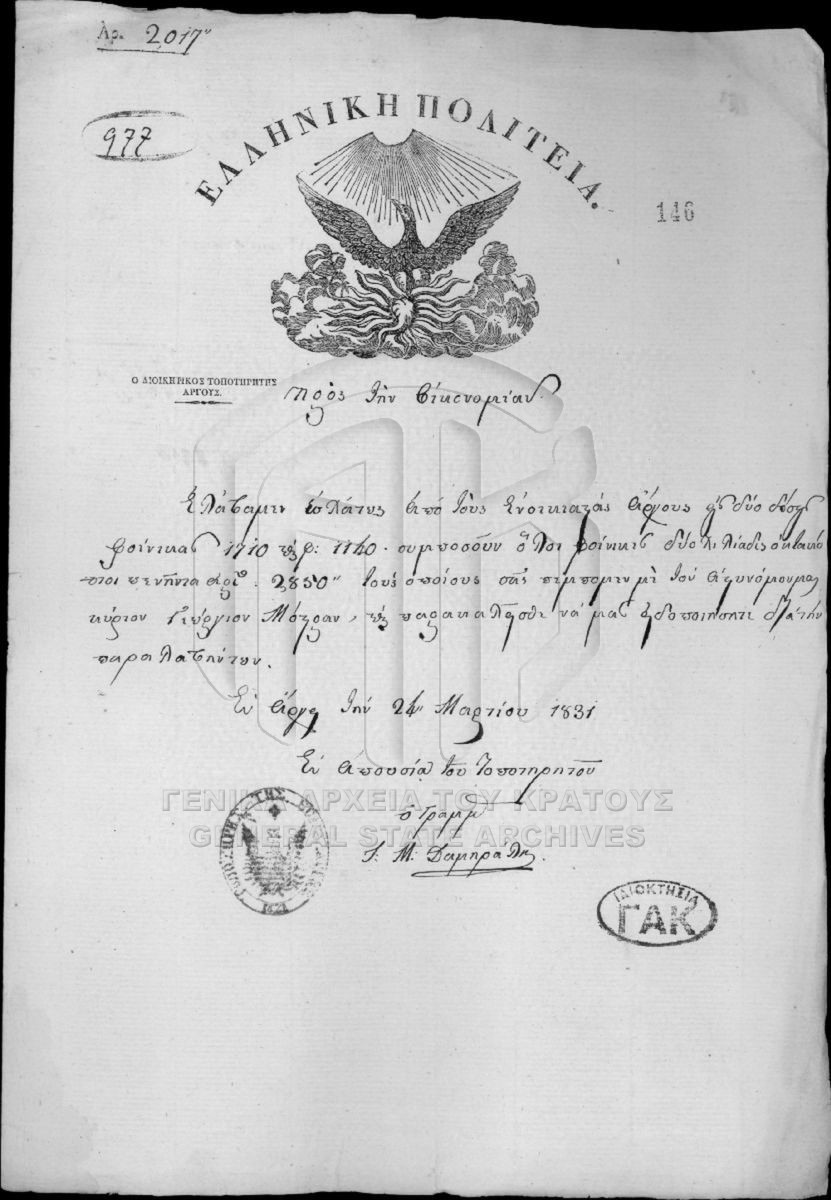 Ἀρ. 2017
977
ΕΛΛΗΝΙΚΗ ΠΟΛΙΤΕΙΑ.
146
Ο ΔΙΟΙΚΗΤΙΚΟΣ ΤΟΠΟΤΗΡΗΤΗΣ
ΑΡΓΟΥΣ.
Πρὸς τὴν
Ἐλάβαμεν ἀπὸ τοὺς Ἐνοικιαστὰς Ἄργους εἰς δύο δόσεις
φοίνικας 1710 καὶ φ: 1140 συμποσοῦν ὅλοι φοίνικες δύο χιλιάδες ὀκτακό
σιοι πενῆντα ἀρ: 2850 τοὺς ὁποίους σᾶς πέμπομεν μὲ τὸν ἀστυνόμον μας
κύριον Γεώργιον καὶ παρακαλεῖσθε νὰ μᾶς εἰδοποιήσητε διὰ τὴν
παραλαβήν των.
Ἐν Ἄργει τὴν 24 Μαρτίου 1831
Ἐν ἀπουσίᾳ τοῦ Τοποτηρητοῦ
ὁ Γραμμ
Μ:
ΓΕΝΙΚΑ ΑΡΧΕΙΑ ΤΟΥ ΚΡΑΤΟΥΣ
GENERAL STATE ARCHIVES
ΙΔΙΟΚΤΗΣΙΑ
ΓΑΚ